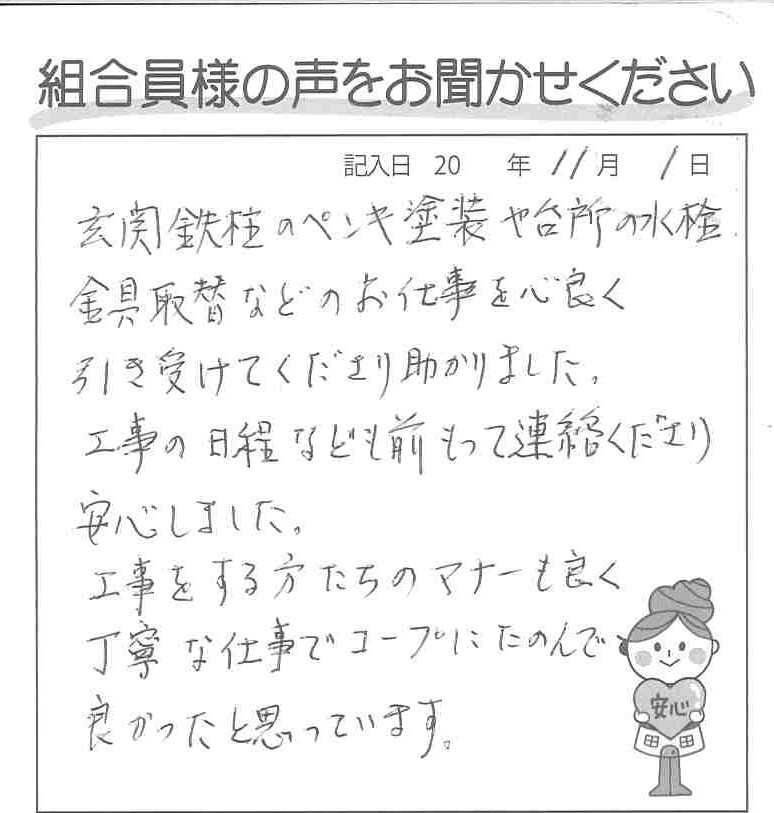 組合員様の声をお聞かせください
記入日 20 年 11月 1日
玄関鉄柱のペンキ塗装や台所の水栓
金具取替などのお仕事を心良く
引き受けてくださり助かりました。
工事の日程なども前もって連絡くださり
安心しました。
工事をする方たちのマナーも良く
丁寧な仕事でコープにたのんで
良かったと思っています。
安心